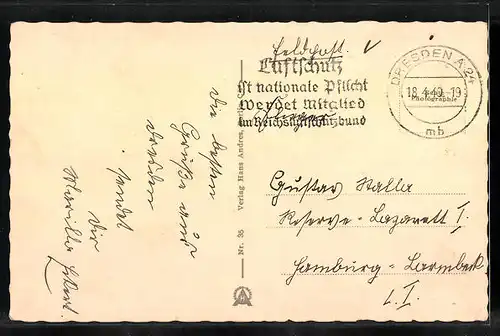 Feldpost.
Luftschutz
ist nationale Pflicht
Werdet Mitglied
im Reichsluftschutzbund
DRESDEN A 24
18.4.40.-19
Photographie
mb
Die besten
Grüße aus
Dresden
sendet
Dir
Nr. 35 Verlag Hans Andres,
Gustav Halla
Reserve-Lazarett I.
Hamburg-Barmbeck